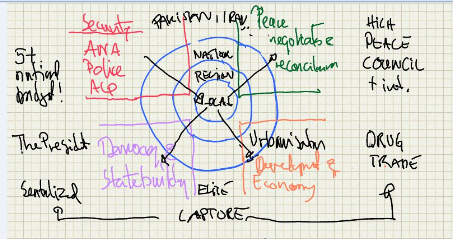 Security
ANA
Police
PAKISTAN / IRAN
Peace
negotiate &
reconciliation
HIGH
PEACE
COUNCIL
+ ind.
NATION
REGION
LOCAL
The Presidt
Democracy &
Statebuilding
Urbanisation
Developmt &
Economy
DRUG
TRADE
ELITE
CAPTURE